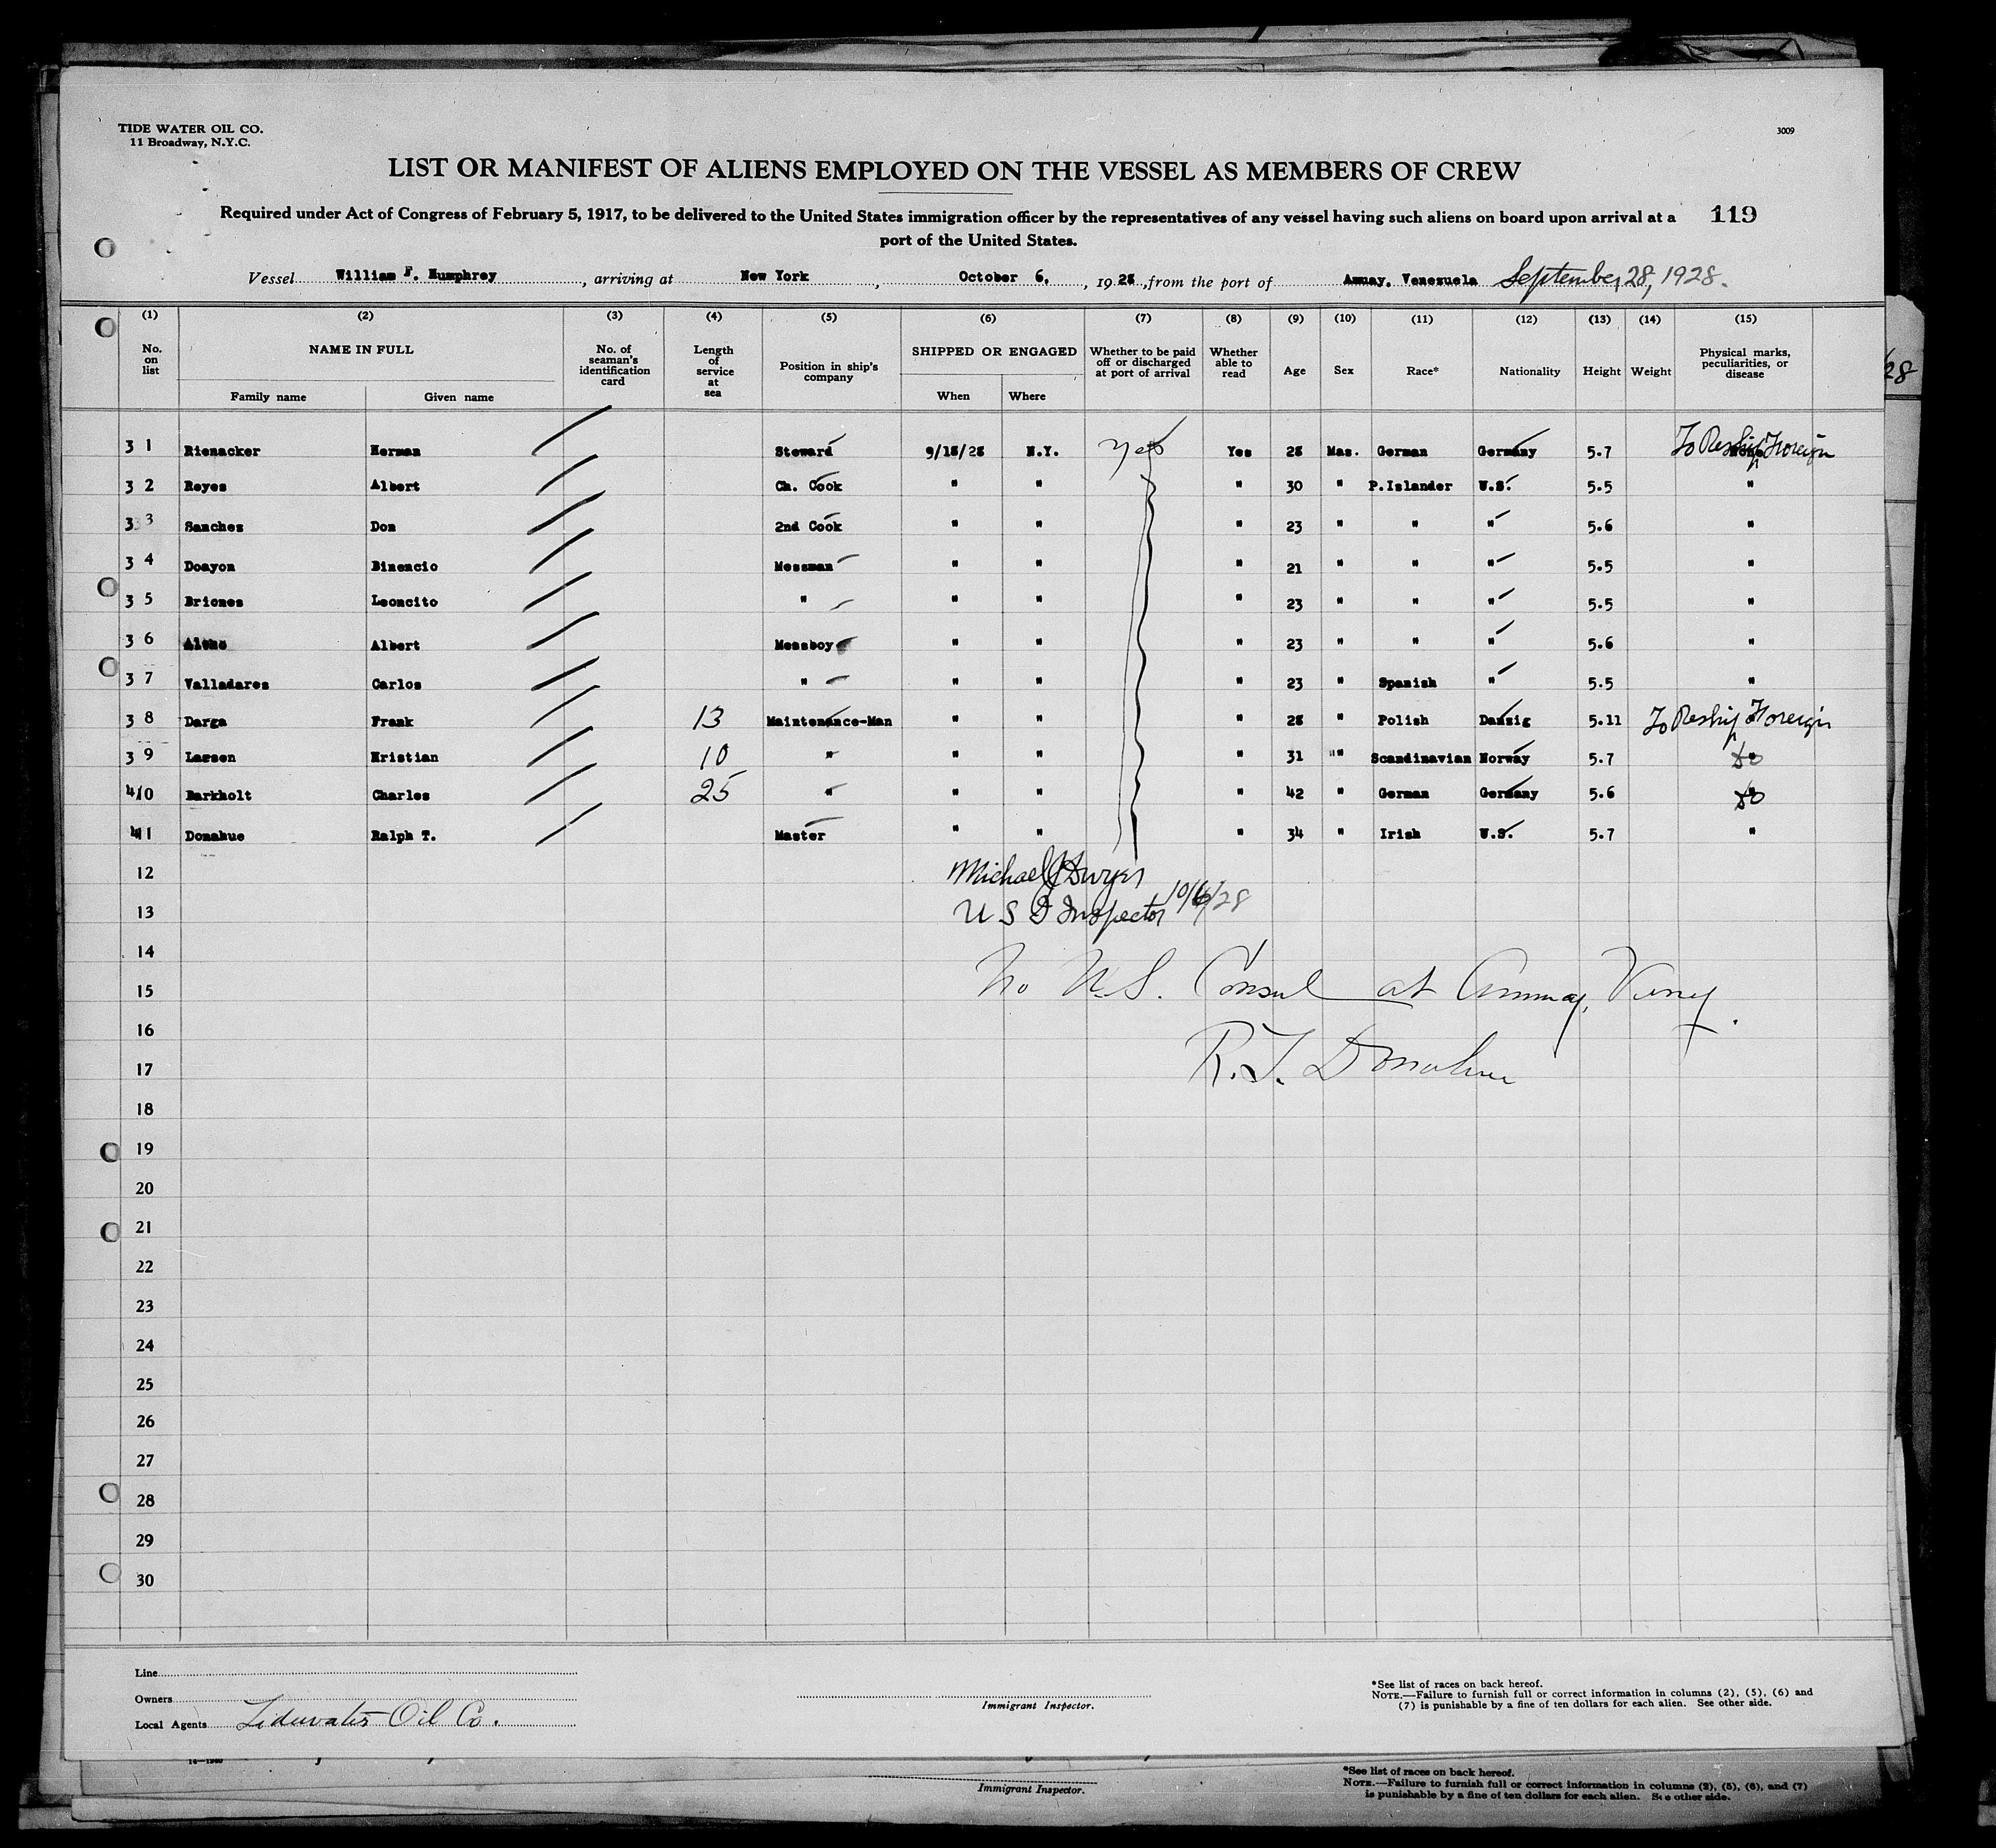 TIDE WATER OIL CO.
11 Broadway, N.Y.C.
3009
LIST OR MANIFEST OF ALIENS EMPLOYED ON THE VESSEL AS MEMBERS OF CREW
Required under Act of Congress of February 5, 1917, to be delivered to the United States immigration officer by the representatives of any vessel having such aliens on board upon arrival at a 119
port of the United States.
Vessel William F. Humphrey, arriving at New York, October 6, 1928, from the port of Amuay, Venezuela September 28, 1928.
(1) (2) (3) (4) (5) (6) (7) (8) (9) (10) (11) (12) (13) (14) (15)
No. on list NAME IN FULL Family name Given name No. of seaman's identification card Length of service at sea Position in ship's company SHIPPED OR ENGAGED When Where Whether to be paid off or discharged at port of arrival Whether able to read Age Sex Race* Nationality Height Weight Physical marks, peculiarities, or disease
28
3 1 Rienacker Herman Steward 9/18/28 N.Y. yes Yes 28 Mas. German Germany 5.7 To Reship Foreign
3 2 Reyes Albert Ch. Cook " " " 30 " P.Islander U.S. 5.5 "
3 3 Sanchez Don 2nd Cook " " " 23 " " " 5.6 "
3 4 Doayon Binencio Messman " " " 21 " " " 5.5 "
3 5 Briones Leoncito " " " " 23 " " " 5.5 "
3 6 Albert Messboy " " " 23 " " " 5.6 "
3 7 Valladares Carlos " " " " 23 " Spanish " 5.5 "
3 8 Darga Frank 13 Maintenance-Man " " " 28 " Polish Danzig 5.11 To Reship Foreign
3 9 Larsen Kristian 10 " " " " 31 " Scandinavian Norway 5.7 do
40 Barkholt Charles 25 " " " " 42 " German Germany 5.6 do
41 Donahue Ralph T. Master " " " 34 " Irish U.S. 5.7 "
12 Michael J Dwyer
13 U S I Inspector 10/6/28
14
15 No U.S. Consul at Amuay, Venez.
16
17 R.T. Donahue
18
19
20
21
22
23
24
25
26
27
28
29
30
Line
Owners
Local Agents Tidewater Oil Co.
Immigrant Inspector.
*See list of races on back hereof.
NOTE.—Failure to furnish full or correct information in columns (2), (5), (6) and
(7) is punishable by a fine of ten dollars for each alien. See other side.
Immigrant Inspector.
*See list of races on back hereof.
NOTE.—Failure to furnish full or correct information in columns (2), (5), (6), and (7)
is punishable by a fine of ten dollars for each alien. See other side.